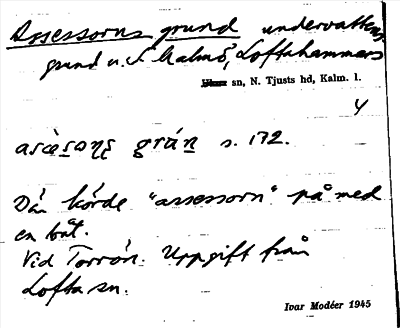 Assessorns grund undervattens
grund n.v. Malmö, Loftahammars
sn, N. Tjusts hd, Kalm. l.
4
s. 172.
Där körde "assessorn" på med
en båt.
Vid Torrön. Uppgift från
Lofta sn.
Ivar Modéer 1945